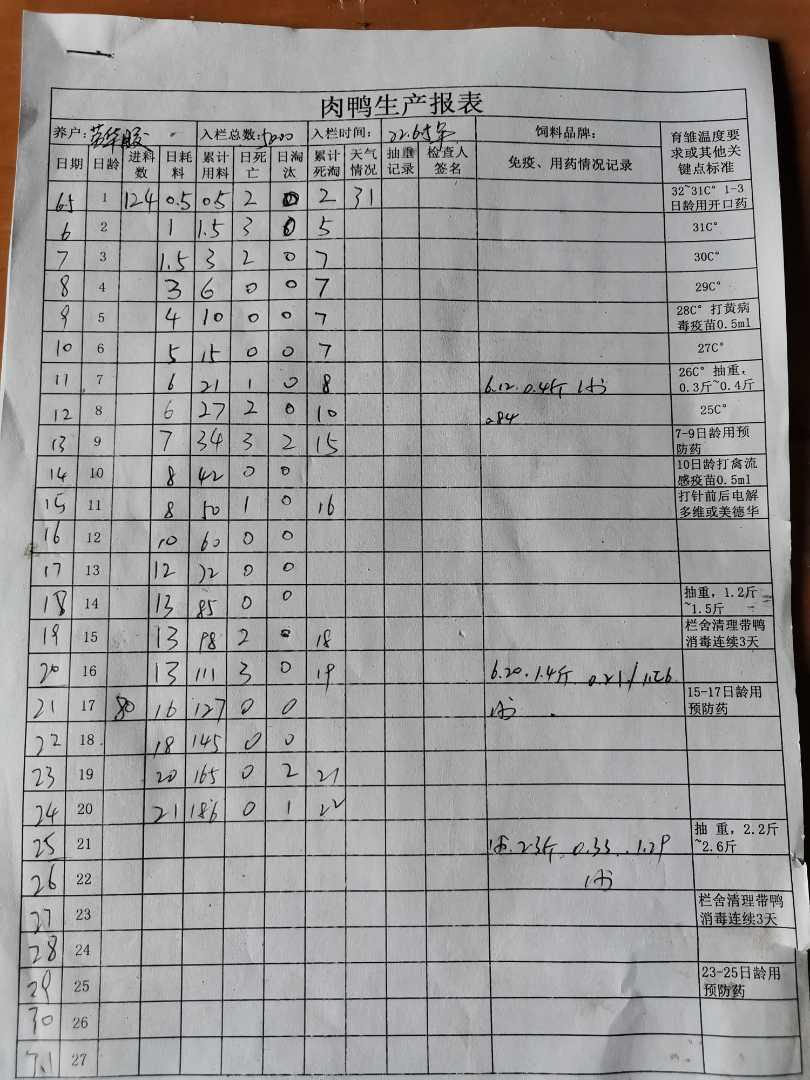 肉鸭生产报表
养户: 入栏总数:5200 入栏时间: 22.6.5号 饲料品牌: 育雏温度要求或其他关键点标准
日期 日龄 进料数 日耗料 累计用料 日死亡 日淘汰 累计死淘 天气情况 抽重记录 检查人签名 免疫、用药情况记录
6.5 1 124 0.5 0.5 2 0 2 31 32~31C° 1-3日龄用开口药
6 2 1 1.5 3 0 5 31C°
7 3 1.5 3 2 0 7 30C°
8 4 3 6 0 0 7 29C°
9 5 4 10 0 0 7 28C° 打黄病毒疫苗0.5ml
10 6 5 15 0 0 7 27C°
11 7 6 21 1 0 8 6.12. 0.4斤 26C° 抽重，0.3斤~0.4斤
12 8 6 27 2 0 10 084 25C°
13 9 7 34 3 2 15 7-9日龄用预防药
14 10 8 42 0 0 10日龄打禽流感疫苗0.5ml
15 11 8 50 1 0 16 打针前后电解多维或美德华
16 12 10 60 0 0
17 13 12 72 0 0
18 14 13 85 0 0 抽重，1.2斤~1.5斤
19 15 13 98 2 0 18 栏舍清理带鸭消毒连续3天
20 16 13 111 3 0 19 6.20. 1.4斤 0.21/1.26
21 17 80 16 127 0 0 15-17日龄用预防药
22 18 18 145 0 0
23 19 20 165 0 2 21
24 20 21 186 0 1 22
25 21 2.3斤. 0.33. 1.29 抽 重，2.2斤~2.6斤
26 22
27 23 栏舍清理带鸭消毒连续3天
28 24
29 25 23-25日龄用预防药
30 26
7.1 27